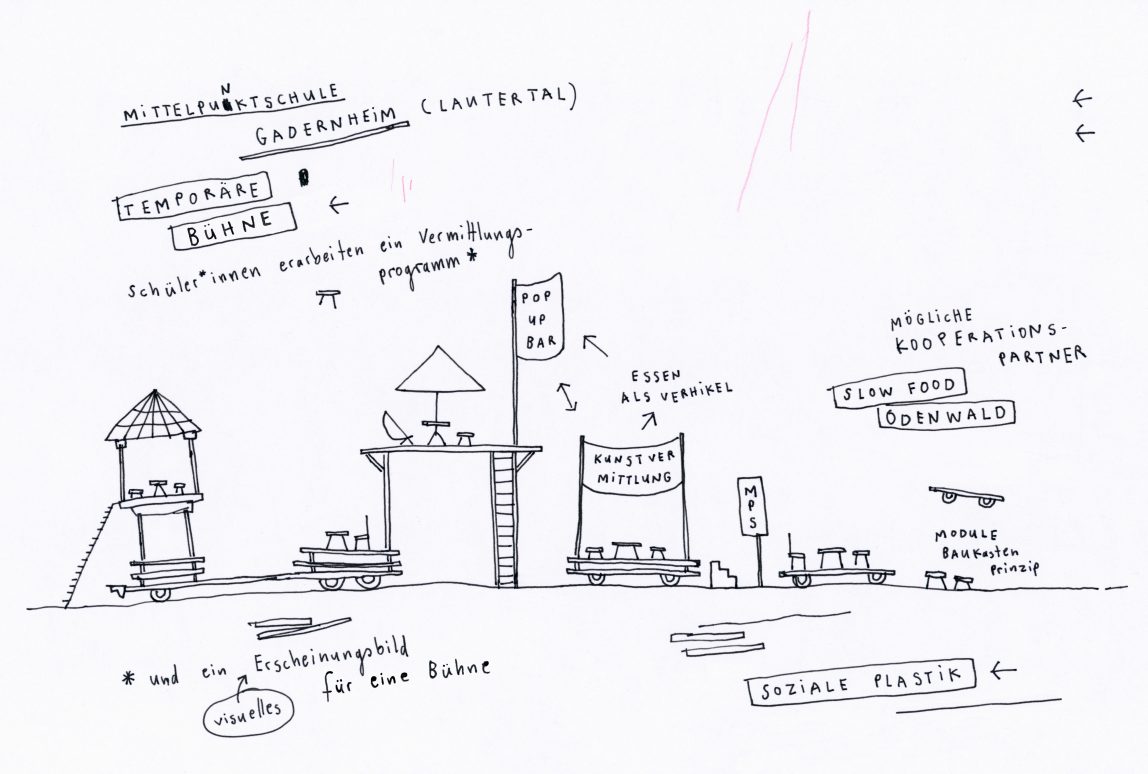 MITTELPUNKTSCHULE
GADERNHEIM (LAUTERTAL)
TEMPORÄRE
BÜHNE
Schüler*innen erarbeiten ein Vermittlungs-
programm*
POP
UP
BAR
ESSEN
ALS VERHIKEL
MÖGLICHE
KOOPERATIONS-
PARTNER
SLOW FOOD
ODENWALD
KUNSTVER
MITTLUNG
MPS
MODULE
BAUKASTEN
PRINZIP
* und ein Erscheinungsbild
für eine Bühne
visuelles
SOZIALE PLASTIK